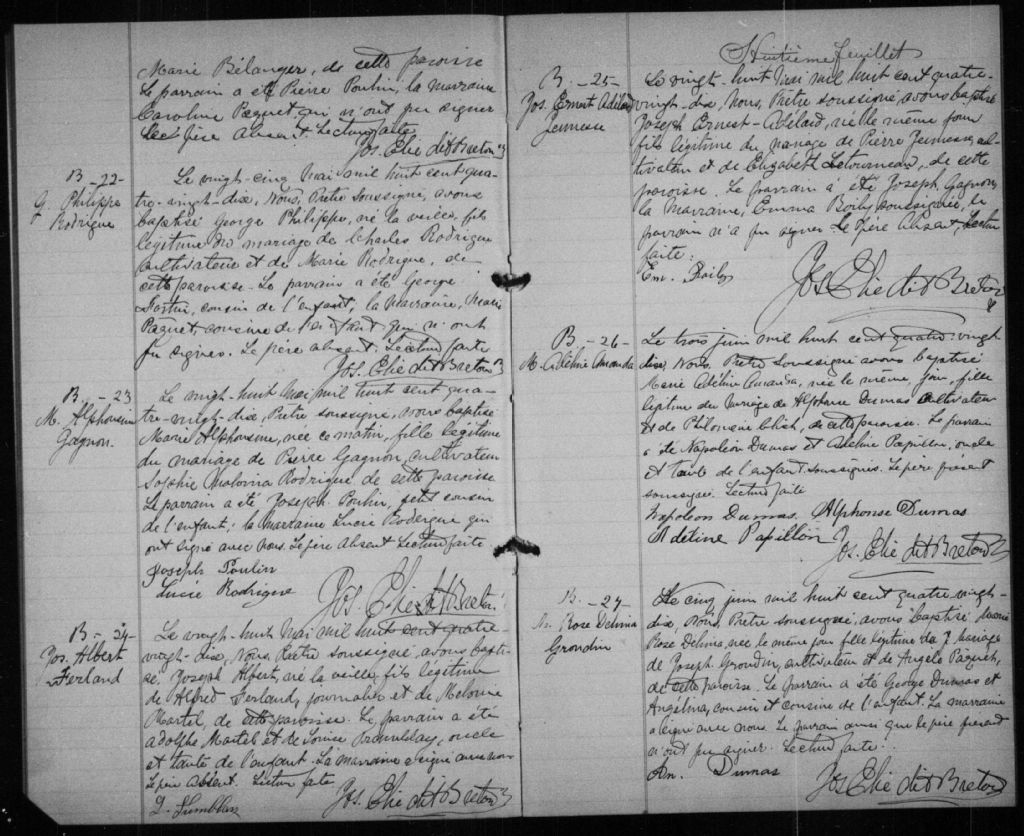 Marie Bélanger, de cette paroisse
Le parrain a été Pierre Poulin, la marraine
Caroline Paquet qui n'ont pu signer
Le père absent. Lecture faite
Jos. Elie dit Breton
B_22_
G. Philippe
Rodrigue
Le vingt-cinq Mai mil huit cent qua-
tre-vingt-dix, Nous, Prêtre soussigné, avons
baptisé George Philippe, né la veille, fils
légitime du mariage de Charles Rodrigue
cultivateur et de Marie Rodrigue, de
cette paroisse. Le parrain a été George
Fortin, cousin de l'enfant, la marraine, Marie
Paquet, cousine de l'enfant qui n'ont
pu signer. Le père absent. Lecture faite
Jos. Elie dit Breton
B._23
M. Alphonsine
Gagnon.
Le vingt-huit Mai, mil huit cent qua-
tre-vingt-dix, Prêtre soussigné, avons baptisé
Marie Alphonsine, née ce matin, fille légitime
du mariage de Pierre Gagnon, cultivateur
Sophie Rodrigue de cette paroisse
Le parrain a été Joseph Poulin, petit cousin
de l'enfant; la marraine Lucie Roderigue qui
ont signé avec nous. Le père absent Lecture faite
Joseph Poulin
Lucie Rodrigue
Jos. Elie dit Breton
B_24
Jos. Albert
Ferland
Le vingt-huit Mai mil huit cent quatre-
vingt-dix, Nous, Prêtre soussigné, avons bapti-
sé Joseph Albert, né la veille, fils légitime
de Alfred Ferland, journalier et de
Martel de cette paroisse. Le parrain a été
Adolphe Martel et de Louise oncle
et tante de l'enfant. La marraine a signé avec nous
Le père absent. Lecture faite
Jos. Elie dit Breton
Huitième feuillet
B._25_
Jos. Ernest Adélard
Jeunesse
Le vingt-huit Mai mil huit cent quatre-
vingt-dix, Nous, Prêtre soussigné avons baptisé
Joseph Ernest-Adélard, né le même jour
fils légitime du mariage de Pierre Jeunesse, cul-
tivateur et de Elizabeth Letourneau, de cette
paroisse. Le parrain a été Joseph Gagnon,
la Marraine, Emma Boily soussignée, le
parrain n'a pu signer. Le père absent, Lecture
faite:
Em. Boily
Jos Elie dit Breton
B._26_
M. Adeline Amanda
Le trois juin mil huit cent quatre-vingt
dix, Nous, Prêtre soussigné avons baptisé
Marie Adéline Amanda, née le même jour, fille
légitime du mariage de Alphonse Dumas cultivateur
et de Philomène de cette paroisse. Le parrain
a été Napoléon Dumas et Adeline Papillon, oncle
et tante de l'enfant soussignés. Le père présent
soussigné. Lecture faite
Napoleon Dumas. Alphonse Dumas
Adeline Papillon
Jos. Elie dit Breton
B._27
M. Rose Delima
Grondin
Le cinq juin mil huit cent quatre vingt-
dix, Nous, Prêtre soussigné, avons baptisé Marie
Rose Delima, née le même jour fille légitime du mariage
de Joseph Grondin, cultivateur et de Angèle Paquet,
de cette paroisse. Le parrain a été George Dumas et
Angelina, cousin et cousine de l'enfant. La marraine
a signé avec nous. Le parrain ainsi que le père présent
n'ont pu signer. Lecture faite.
An. Dumas
Jos Elie dit Breton